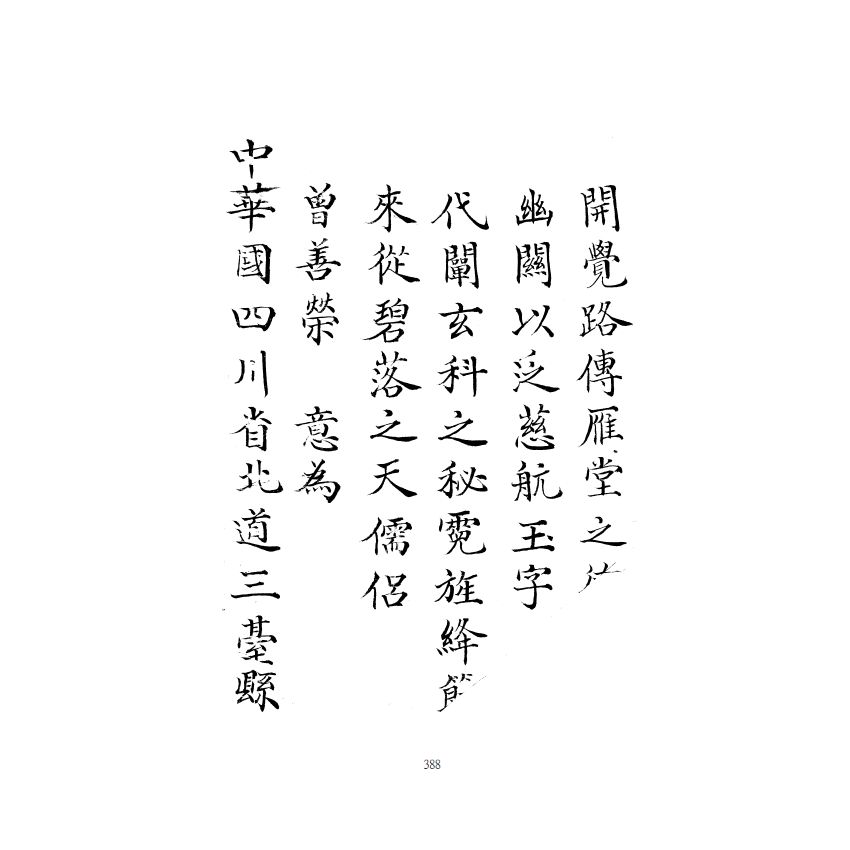 開覺路傳雁堂之
幽關以乏慈航玉字
代闡玄科之秘霓旌絳節
來從碧落之天儒侶
曾善榮 意為
中華國四川省北道三臺縣
388